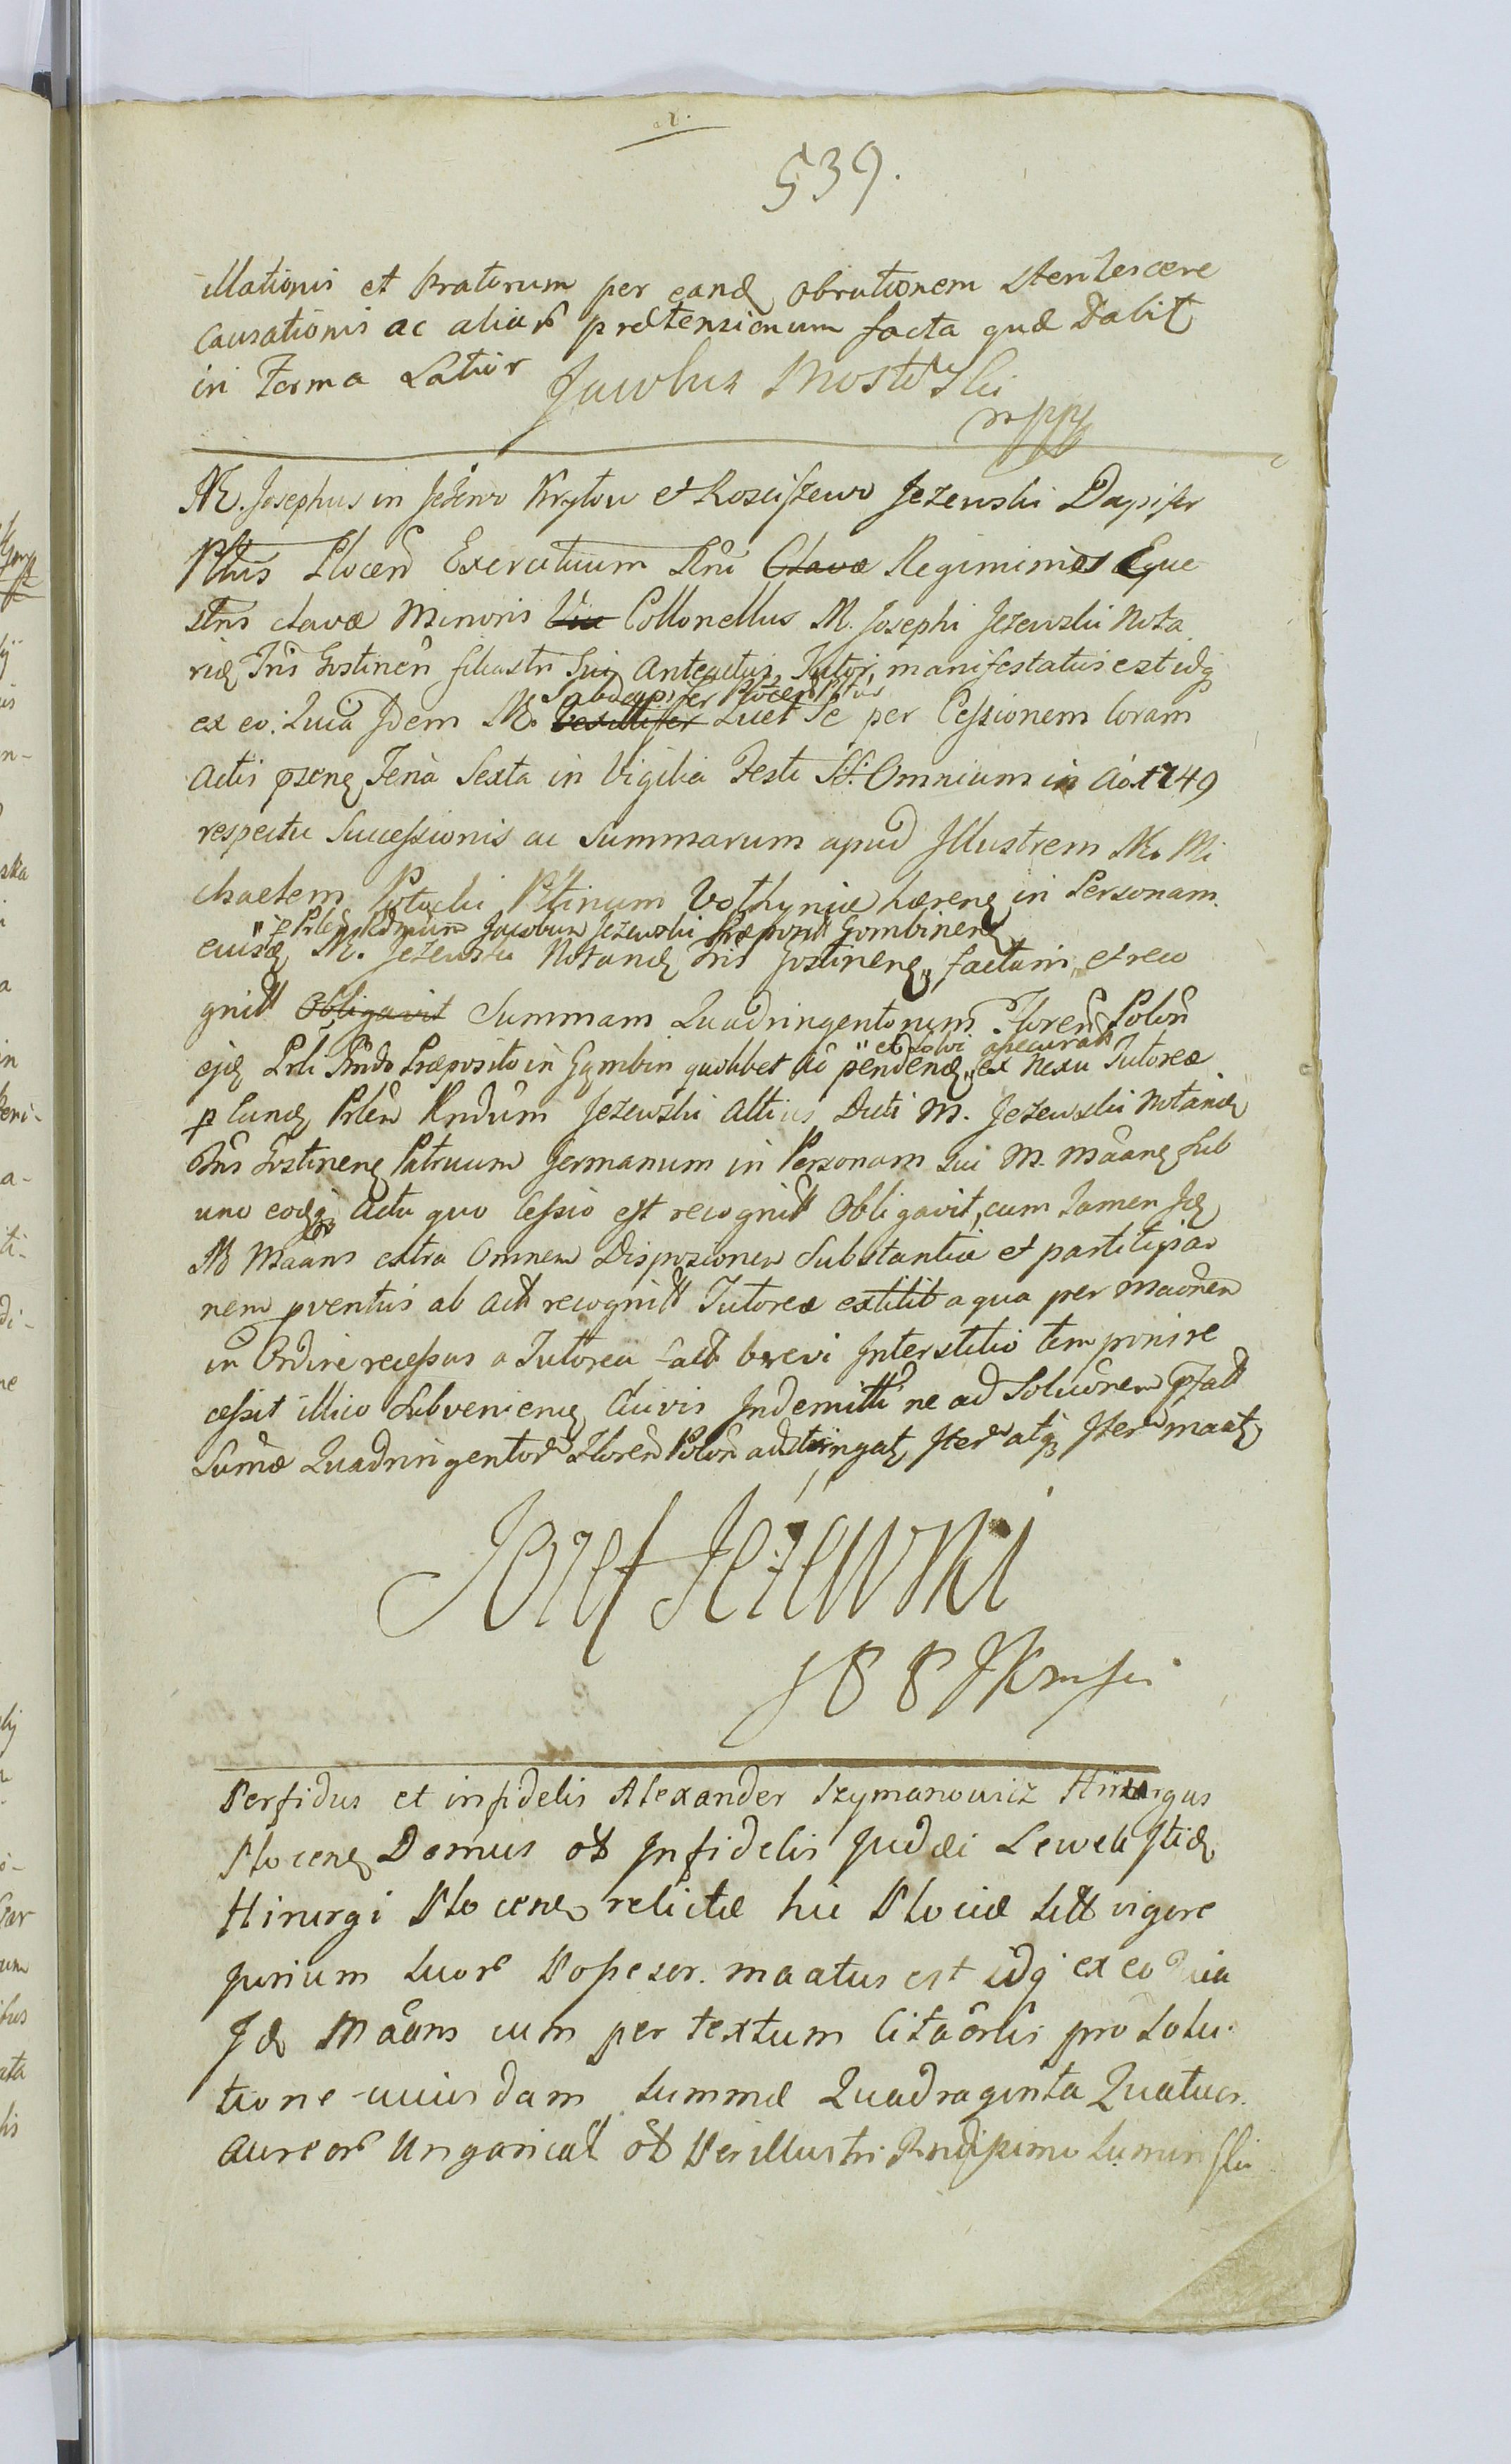 539.
illationis et Pratorum per eand obrutionem sterilescere
causationis ac aliar prætensionum facta quæ Dabit
in Forma Latior Jacobus Mostowski
mpp
M. Josephus in Jeżewo Kryłow et Rosciszewo Jezewski Dapifer
Pltus Plocen Exercituum Rni Clavæ Regiminis Eque
stris clavæ Minoris Vice Collonellus M. Josephi Jezewski Nota
rid Tris Gostinen filiastri Sui Anteactus Tutor manifestatus est idq
Subdapifer Plocen Pltus
ex eo: Quia Idem M. Vexillifer Licet Se per Cessionem Coram
Actis psenq Feria Sexta in Vigilia Festi SS: Omnium in Ao 1749
respectu Successionis ac Summarum apud Illustrem M. Mi
chaelem Potocki Pltinum Volhyniæ hærenq in Personam
"e Prlem Rdmum Jacobum Jezewski Præposit Gombinenq
eiusd M. Jezewski Notarid Tris Gostinenq" factam, et reco
gnitt Obligavit Summam Quadringentorum Floren Polon
et Solvi assecurat
ejd Prli Rndo Præposito in Gombin quolibet Ao pendend" ex Nexu Tutoreæ
p Eund Prlem Rndum Jezewski Altius Dicti M. Jezewski Notarid
Tris Gostinenq Patruum Germanum in Personam Sui M. Mâanq sub
uno eodq Actu quo Cessio est recognitt Obligavit, cum Tamen Jd
M Mâans extra Omnem Disposionem Substantiæ et partitipao
nem pventus ab Actt recognitt Tutoreæ extitit a qua per Maonem
in Ordine recessus a Tutorea fact brevi Interstitio temporis re
cessit illico Subvenienq Cuivis Indemitti ne ad Soluonem Pfatt
Sumæ Quadringentor Floren Polon adstringat, Iter atq Iter mâat
Jozef Jeżewski
Perfidus et infidelis Alexander Szymanowicz Hirurgus
Plocenq Domus olt Infidelis Judæi Lewek Itid
Hirurgi Plocen relictæ hic Plociæ Sitt vigore
jurium Suor Possesor. maatus est idq ex eo quia
Jd Mâans cum per textum Citaoris pro Solu-
tione cuiusdam Summæ Quadraginta Quatuor
Aureor Ungarical olt Perillustri Rndissimo Suminski